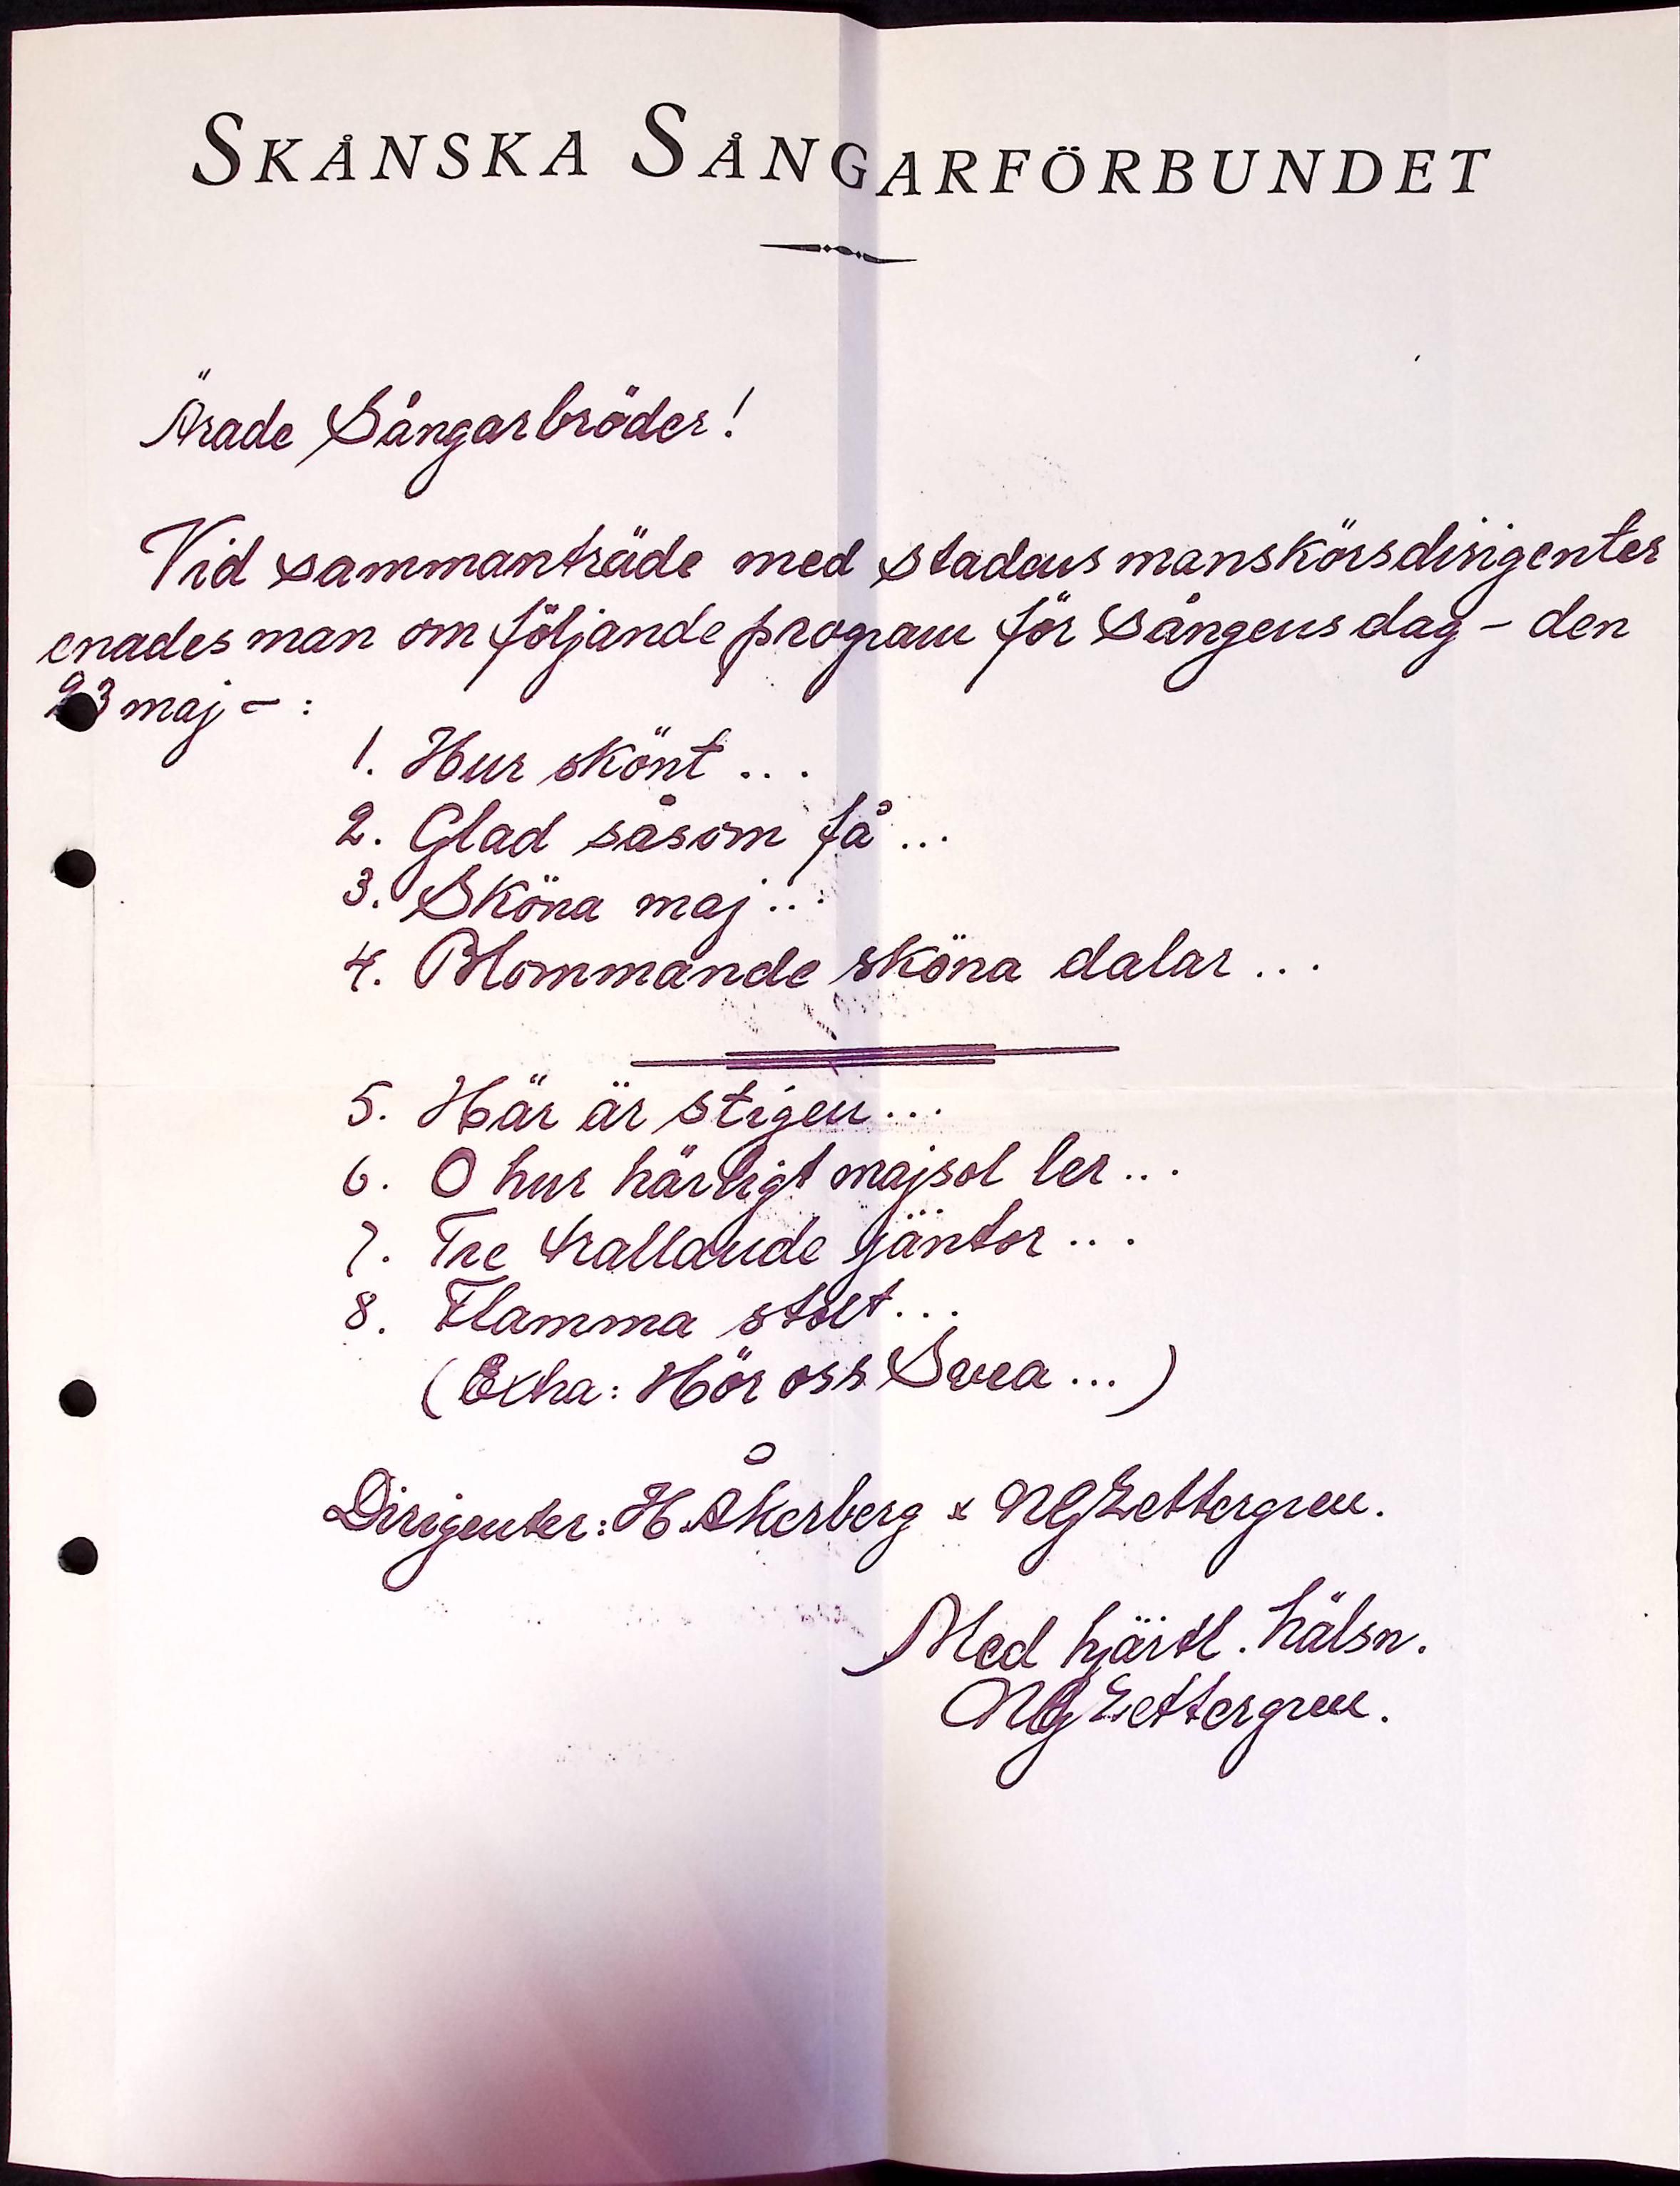 SKÅNSKA SÅNGARFÖRBUNDET
Ärade Sångarbröder!
Vid sammanträde med stadens manskörsdirigenter
enades man om följande program för Sångens dag - den
23 maj - :
1. Hur skönt ...
2. Glad såsom få ...
3. Sköna maj ...
4. Blommande sköna dalar ...
5. Här är stigen ...
6. O hur härligt majsol ler ...
7. Tre trallande jäntor ...
8. Flamma stolt ...
(Extra: Hör oss Svea ...)
Dirigenter: H. Åkerberg & NGZettergren.
Med hjärtl. hälsn.
NGZettergren.